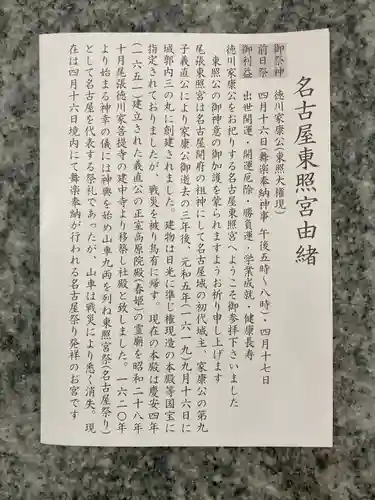 名古屋東照宮由緒
御祭神　徳川家康公(東照大権現)
前日祭　四月十六日(舞楽奉納神事 午後五時〜八時)・四月十七日
御利益　出世開運・開運厄除・勝負運・学業成就・健康長寿
徳川家康公をお祀りする名古屋東照宮へようこそ御参拝下さいました
東照公の御神意の御加護を蒙られますようお祈り申し上げます
尾張東照宮は名古屋開府の祖神にして名古屋城の初代城主、家康公の第九
子義直公により家康公御逝去の三年後、元和五年(一六一九)九月十六日に
城郭内三の丸に創建されました。建物は日光に準じ権現造の本殿等国宝に
指定されておりましたが、戦災を被り烏有に帰す。現在の本殿は慶安四年
(一六五一)建立された義直公の正室高原院殿(春姫)の霊廟を昭和二十八年
十月尾張徳川家菩提寺の建中寺より移築し社殿と致しました。一六二〇年
より始まる神幸の儀には神輿を始め山車九両を列ね東照宮祭(名古屋祭り)
として名古屋を代表する祭礼であったが、山車は戦災により悉く消失。現
在は四月十六日境内にて舞楽奉納が行われる名古屋祭り発祥のお宮です